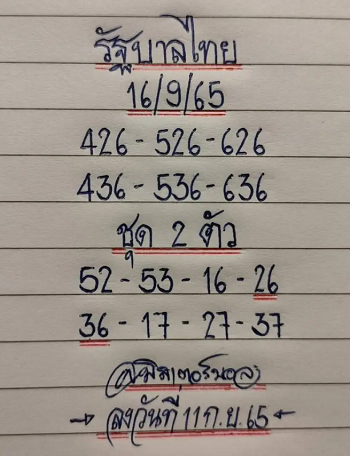 รัฐบาลไทย
16/9/65
426 - 526 - 626
436 - 536 - 636
ชุด 2 ตัว
52 - 53 - 16 - 26
36 - 17 - 27 - 37
ลงวันที่ 11 ก.ย. 65